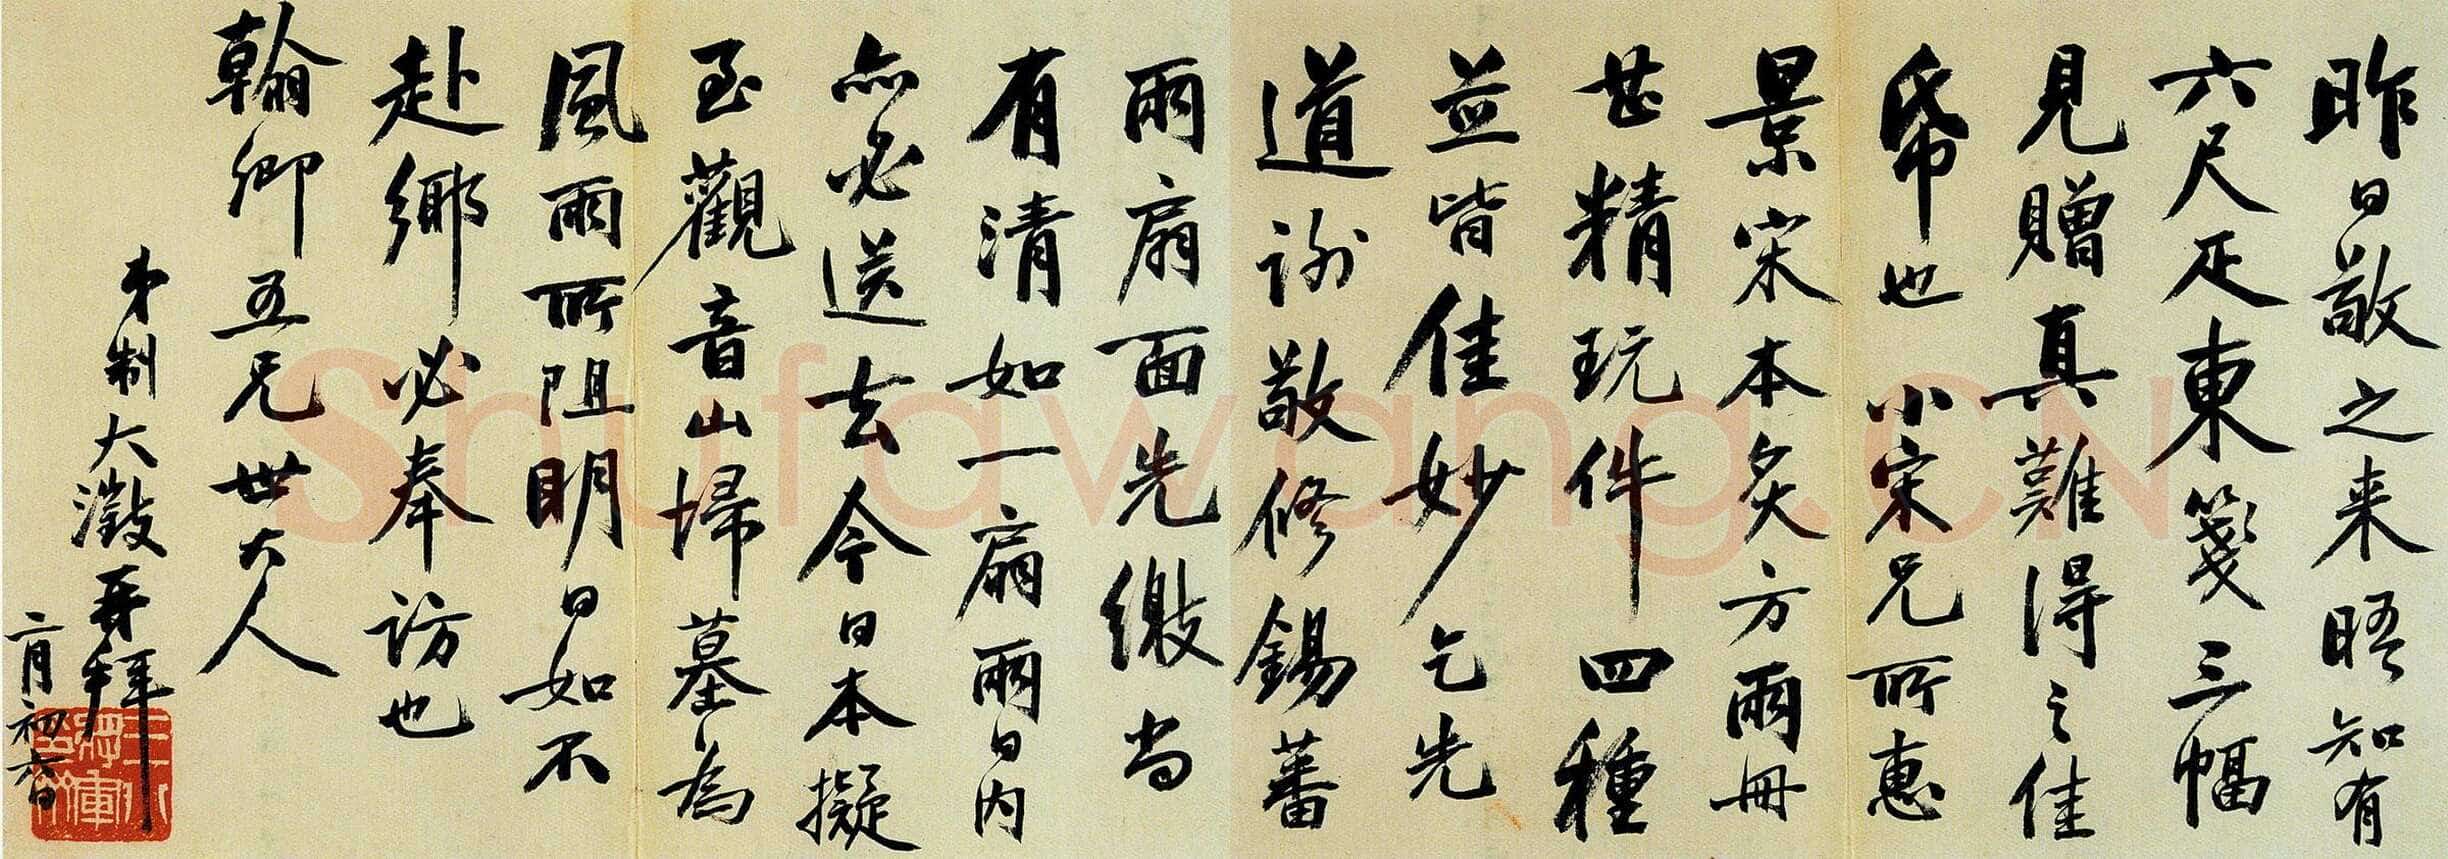 昨日敬之来晤知有
六尺疋東箋三幅
見贈真難得之佳
帋也小宋兄所惠
景宋本炙方兩冊
甚精玩件四種
並皆佳妙乞先
道謝敬修錫蕃
兩扇面先繳尚
有清如一扇兩日内
亦必送去今日本擬
至觀音山埽墓為
風雨所阻明日如不
赴鄉必奉訪也
翰卿五兄世大人
弟制大澂再拜
二月初六日
Shufawang.CN